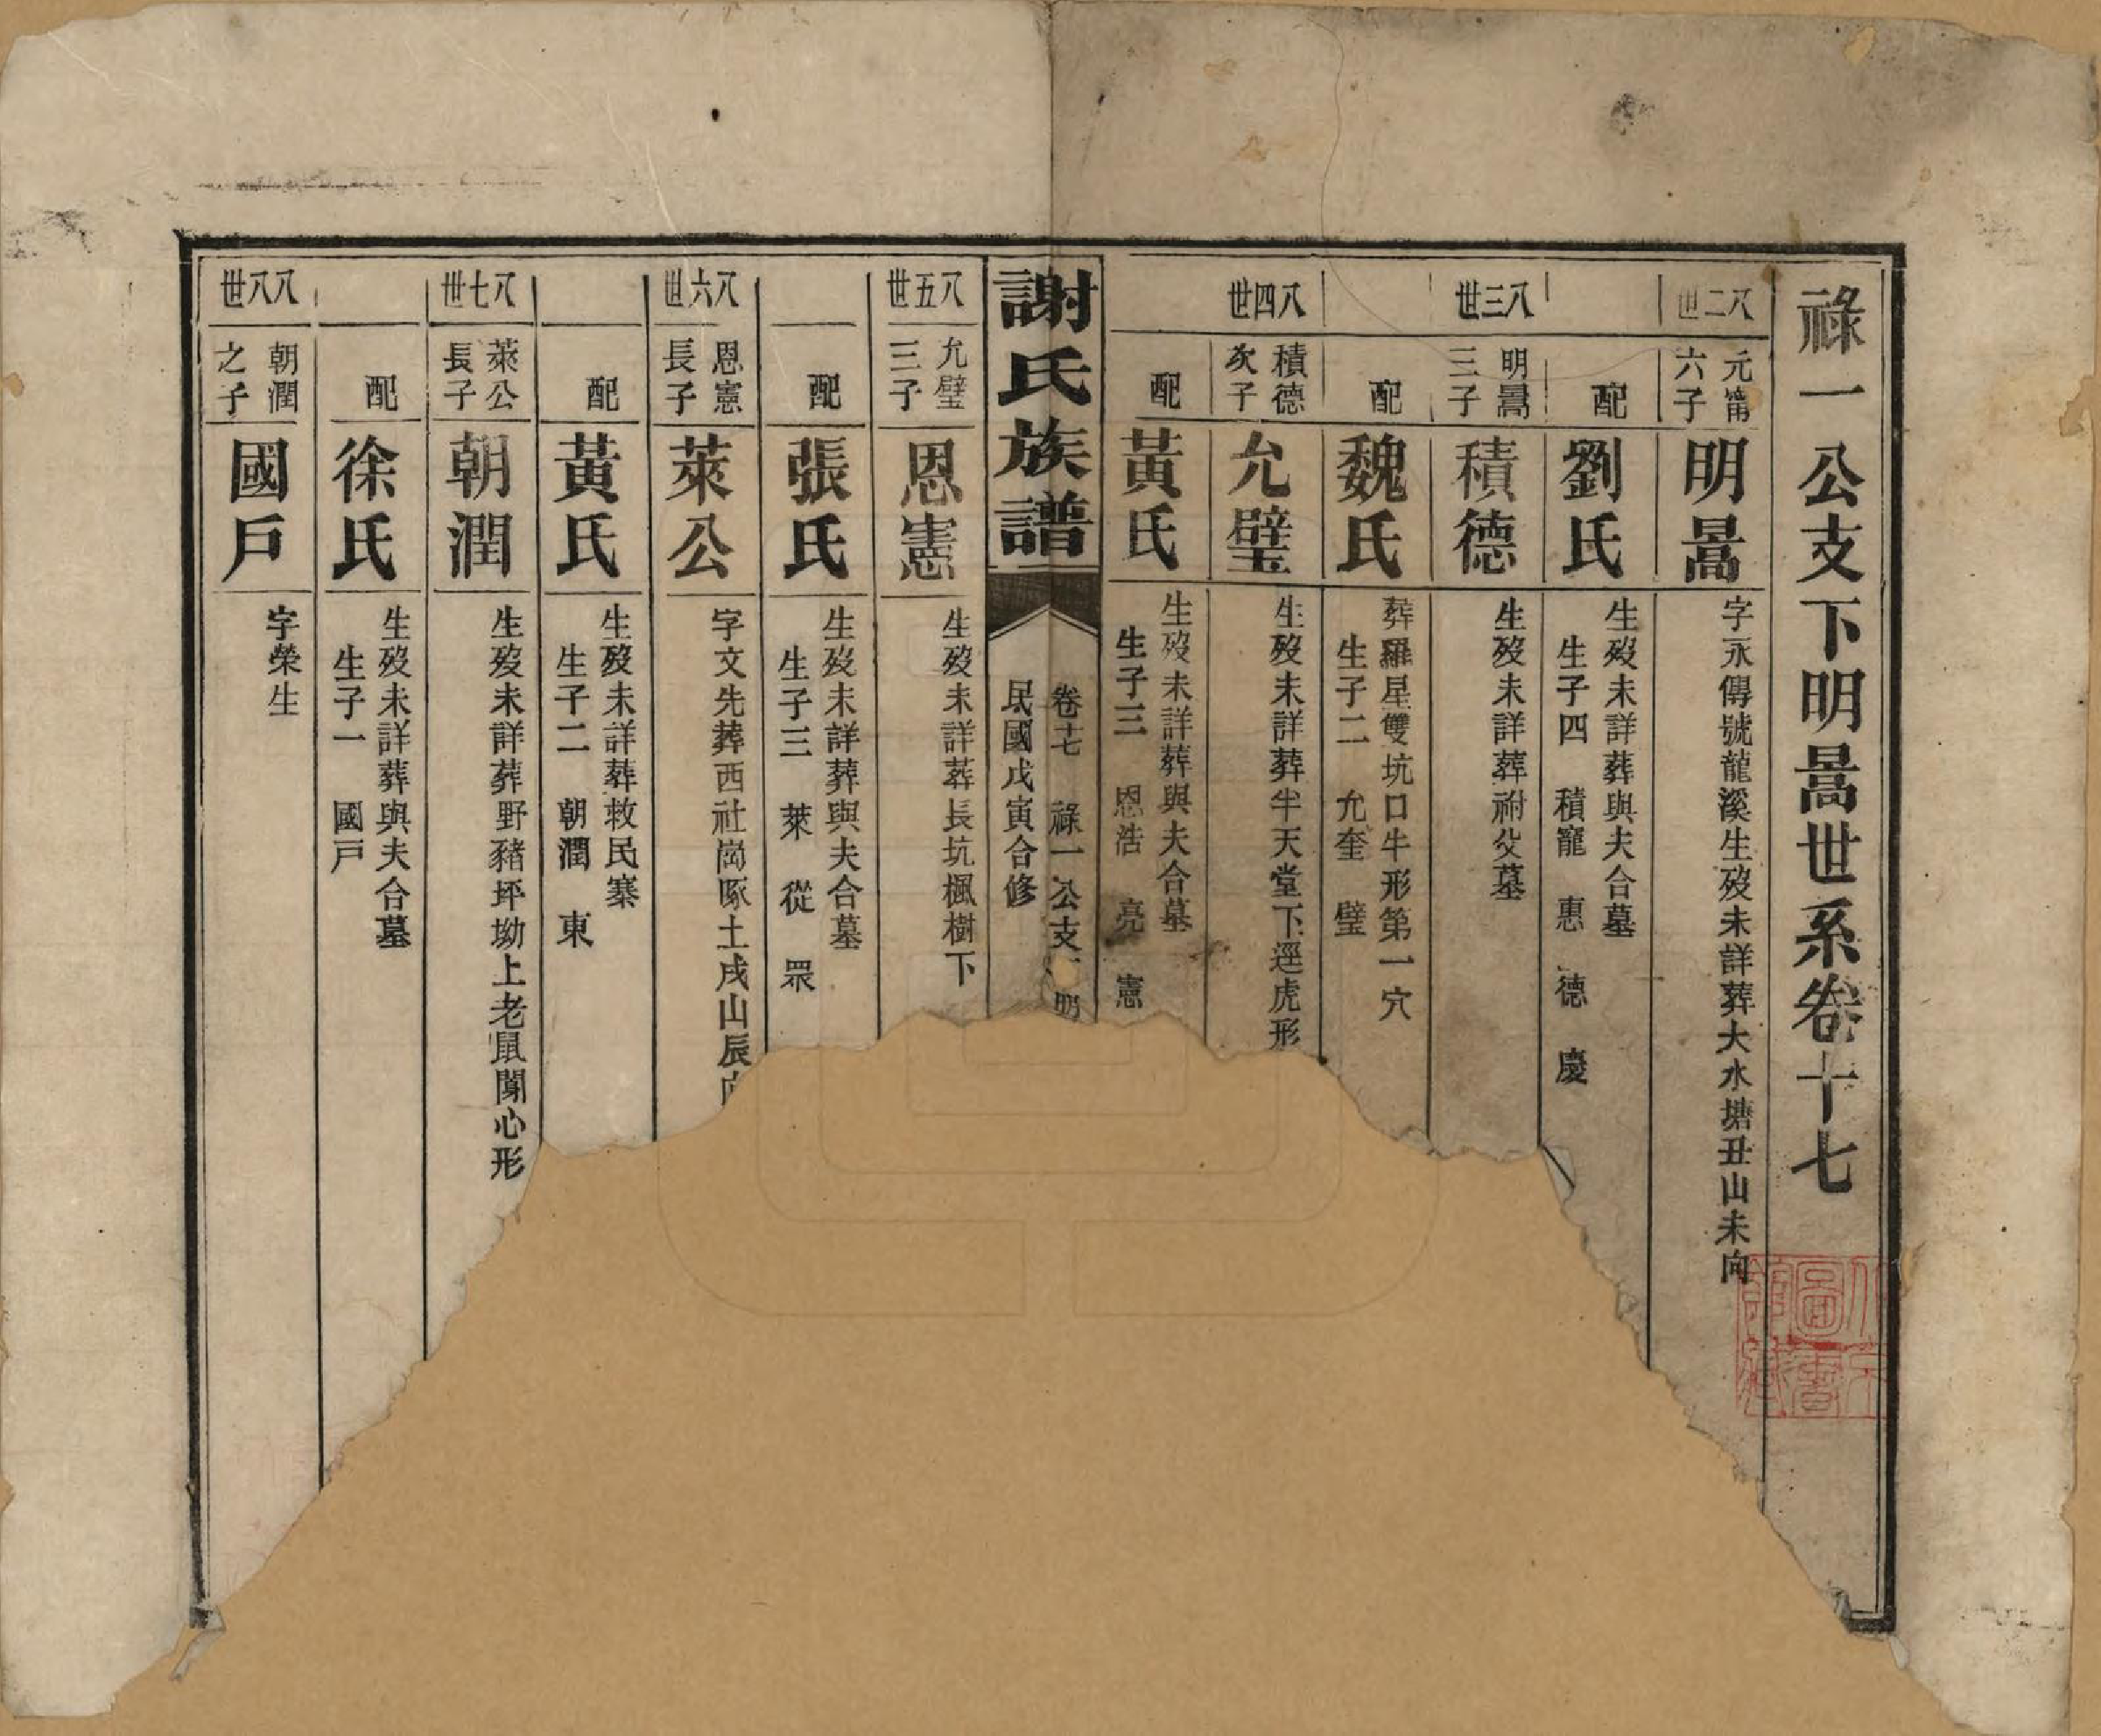 祿一公支下明暠世系卷十七
八二世
元甯六子
明暠
字永傳號龍溪生歿未詳葬大水塘丑山未向
配
劉氏
生歿未詳葬與夫合墓
生子四 積寵 惠 德 慶
八三世
明暠三子
積德
生歿未詳葬祔父墓
配
魏氏
葬羅星雙坑口牛形第一穴
生子二 允奎 璧
八四世
積德次子
允璧
生歿未詳葬半天堂下逕虎形
配
黃氏
生歿未詳葬與夫合墓
生子三 恩浩 亮 憲
謝氏族譜
卷十七 祿一公支 明
民國戊寅合修
八五世
允璧三子
恩憲
生歿未詳葬長坑楓樹下
配
張氏
生歿未詳葬與夫合墓
生子三 萊 從 眾
八六世
恩憲長子
萊公
字文先葬西社崗啄土戌山辰向
配
黃氏
生歿未詳葬救民寨
生子二 朝潤 東
八七世
萊公長子
朝潤
生歿未詳葬野豬坪坳上老鼠閙心形
配
徐氏
生歿未詳葬與夫合墓
生子一 國戶
八八世
朝潤之子
國戶
字榮生